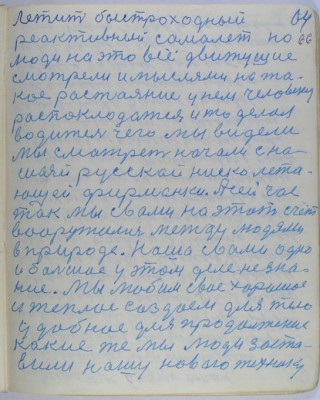 Летит быстроходный 04
реактивный самолет но 66
люди на это всё движущие
смотрели и мыслями на та-
кое растаяние у нем человеку
распокладатся, и то делал
водитель чего мы видели
мы смотреть начали с на-
шаяй русской ниско лета-
ющей фирманки. А сей час
так мы с вами на этот счёт
вооружили между людями
в природе. Наша с вами одно
и большое у этом деле незна-
ние. Мы любим свое хорошое
и теплое создаем для тело
удобное для продолжение
какие же мы люди заста-
вили нашу новаго технику